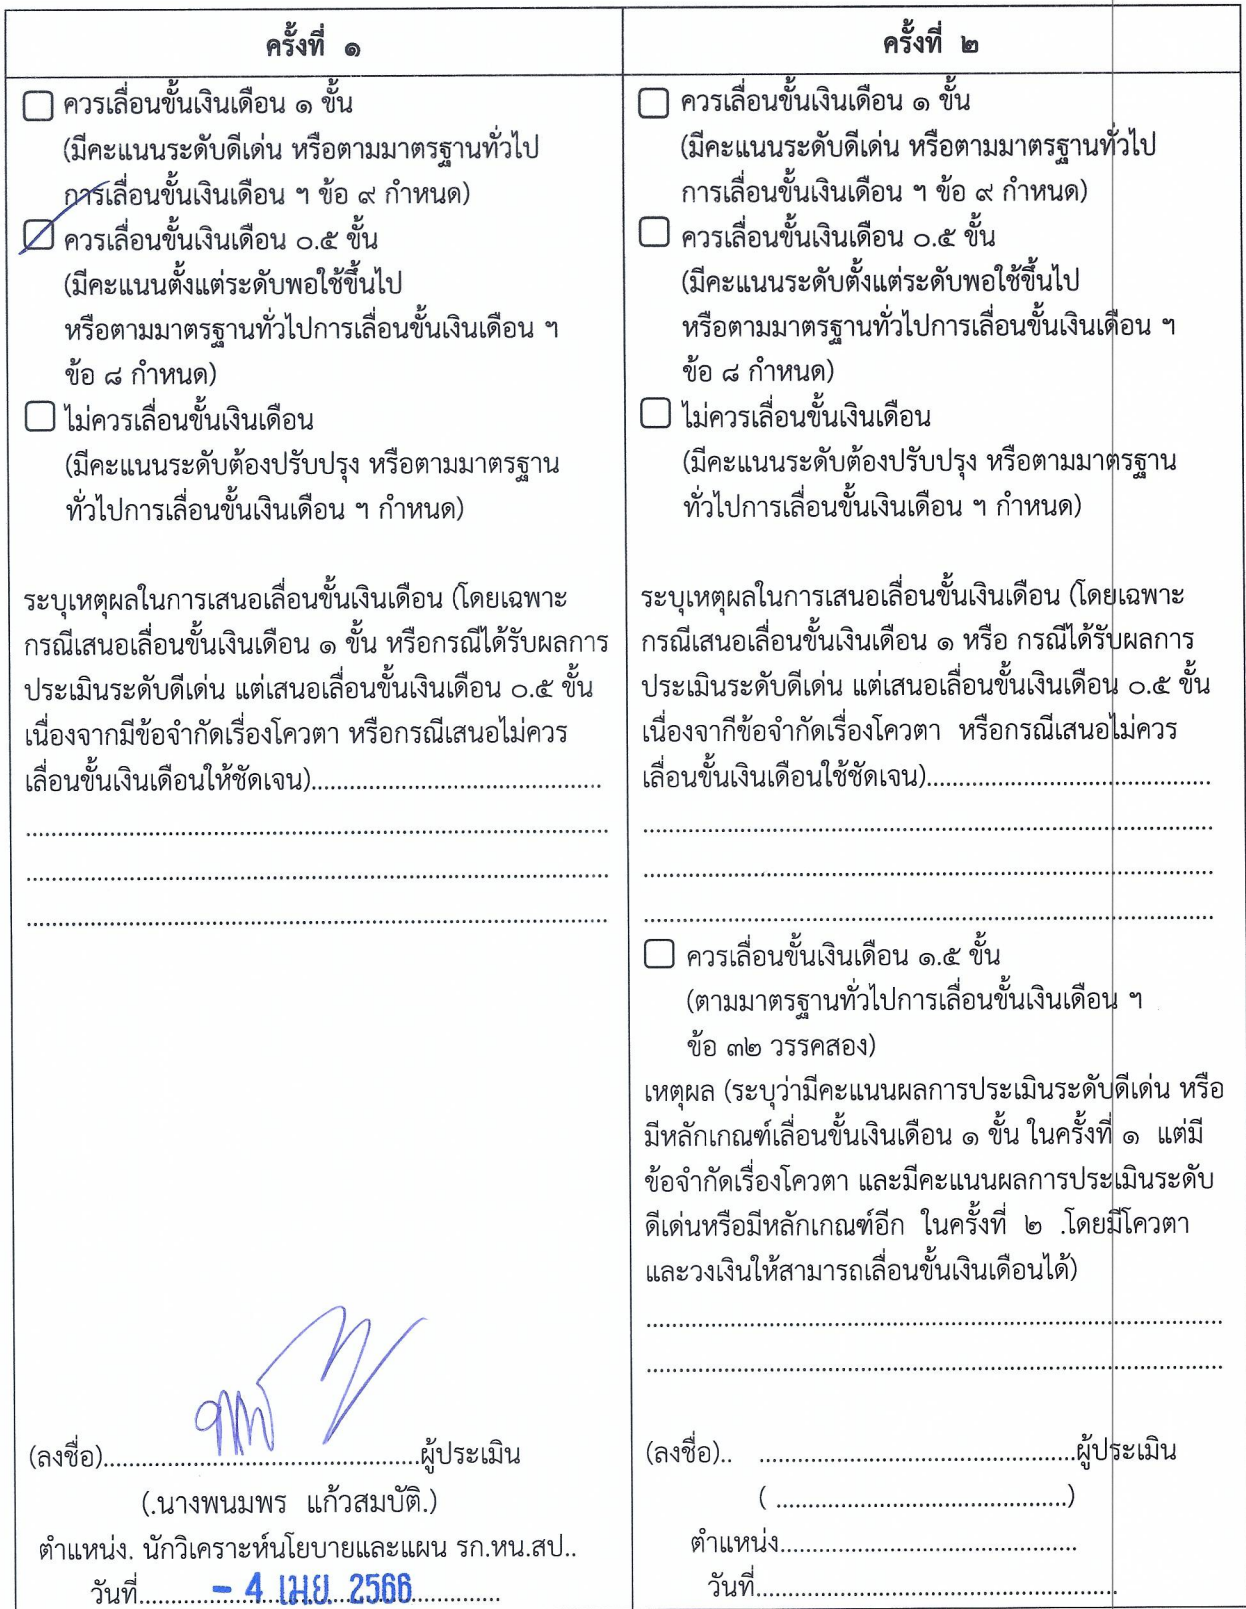 ครั้งที่ ๑
ควรเลื่อนขั้นเงินเดือน ๑ ขั้น
(มีคะแนนระดับดีเด่น หรือตามมาตรฐานทั่วไป
การเลื่อนขั้นเงินเดือน ฯ ข้อ ๙ กำหนด)
ควรเลื่อนขั้นเงินเดือน ๐.๕ ขั้น
(มีคะแนนตั้งแต่ระดับพอใช้ขึ้นไป
หรือตามมาตรฐานทั่วไปการเลื่อนขั้นเงินเดือน ฯ
ข้อ ๘ กำหนด)
ไม่ควรเลื่อนขั้นเงินเดือน
(มีคะแนนระดับต้องปรับปรุง หรือตามมาตรฐาน
ทั่วไปการเลื่อนขั้นเงินเดือน ฯ กำหนด)
ระบุเหตุผลในการเสนอเลื่อนขั้นเงินเดือน (โดยเฉพาะ
กรณีเสนอเลื่อนขั้นเงินเดือน ๑ ขั้น หรือกรณีได้รับผลการ
ประเมินระดับดีเด่น แต่เสนอเลื่อนขั้นเงินเดือน ๐.๕ ขั้น
เนื่องจากมีข้อจำกัดเรื่องโควตา หรือกรณีเสนอไม่ควร
เลื่อนขั้นเงินเดือนให้ชัดเจน)..............................................
(ลงชื่อ)..................................................ผู้ประเมิน
(.นางพนมพร แก้วสมบัติ.)
ตำแหน่ง. นักวิเคราะห์นโยบายและแผน รก.หน.สป..
วันที่........... - 4 เม.ย. 2566..............
ครั้งที่ ๒
ควรเลื่อนขั้นเงินเดือน ๑ ขั้น
(มีคะแนนระดับดีเด่น หรือตามมาตรฐานทั่วไป
การเลื่อนขั้นเงินเดือน ฯ ข้อ ๙ กำหนด)
ควรเลื่อนขั้นเงินเดือน ๐.๕ ขั้น
(มีคะแนนระดับตั้งแต่ระดับพอใช้ขึ้นไป
หรือตามมาตรฐานทั่วไปการเลื่อนขั้นเงินเดือน ฯ
ข้อ ๘ กำหนด)
ไม่ควรเลื่อนขั้นเงินเดือน
(มีคะแนนระดับต้องปรับปรุง หรือตามมาตรฐาน
ทั่วไปการเลื่อนขั้นเงินเดือน ฯ กำหนด)
ระบุเหตุผลในการเสนอเลื่อนขั้นเงินเดือน (โดยเฉพาะ
กรณีเสนอเลื่อนขั้นเงินเดือน ๑ หรือ กรณีได้รับผลการ
ประเมินระดับดีเด่น แต่เสนอเลื่อนขั้นเงินเดือน ๐.๕ ขั้น
เนื่องจากีข้อจำกัดเรื่องโควตา หรือกรณีเสนอไม่ควร
เลื่อนขั้นเงินเดือนใช้ชัดเจน).............................................
ควรเลื่อนขั้นเงินเดือน ๑.๕ ขั้น
(ตามมาตรฐานทั่วไปการเลื่อนขั้นเงินเดือน ฯ
ข้อ ๓๒ วรรคสอง)
เหตุผล (ระบุว่ามีคะแนนผลการประเมินระดับดีเด่น หรือ
มีหลักเกณฑ์เลื่อนขั้นเงินเดือน ๑ ขั้น ในครั้งที่ ๑ แต่มี
ข้อจำกัดเรื่องโควตา และมีคะแนนผลการประเมินระดับ
ดีเด่นหรือมีหลักเกณฑ์อีก ในครั้งที่ ๒ .โดยมีโควตา
และวงเงินให้สามารถเลื่อนขั้นเงินเดือนได้)
(ลงชื่อ).. ..................................................ผู้ประเมิน
( ..............................................)
ตำแหน่ง...............................................
วันที่.........................................................